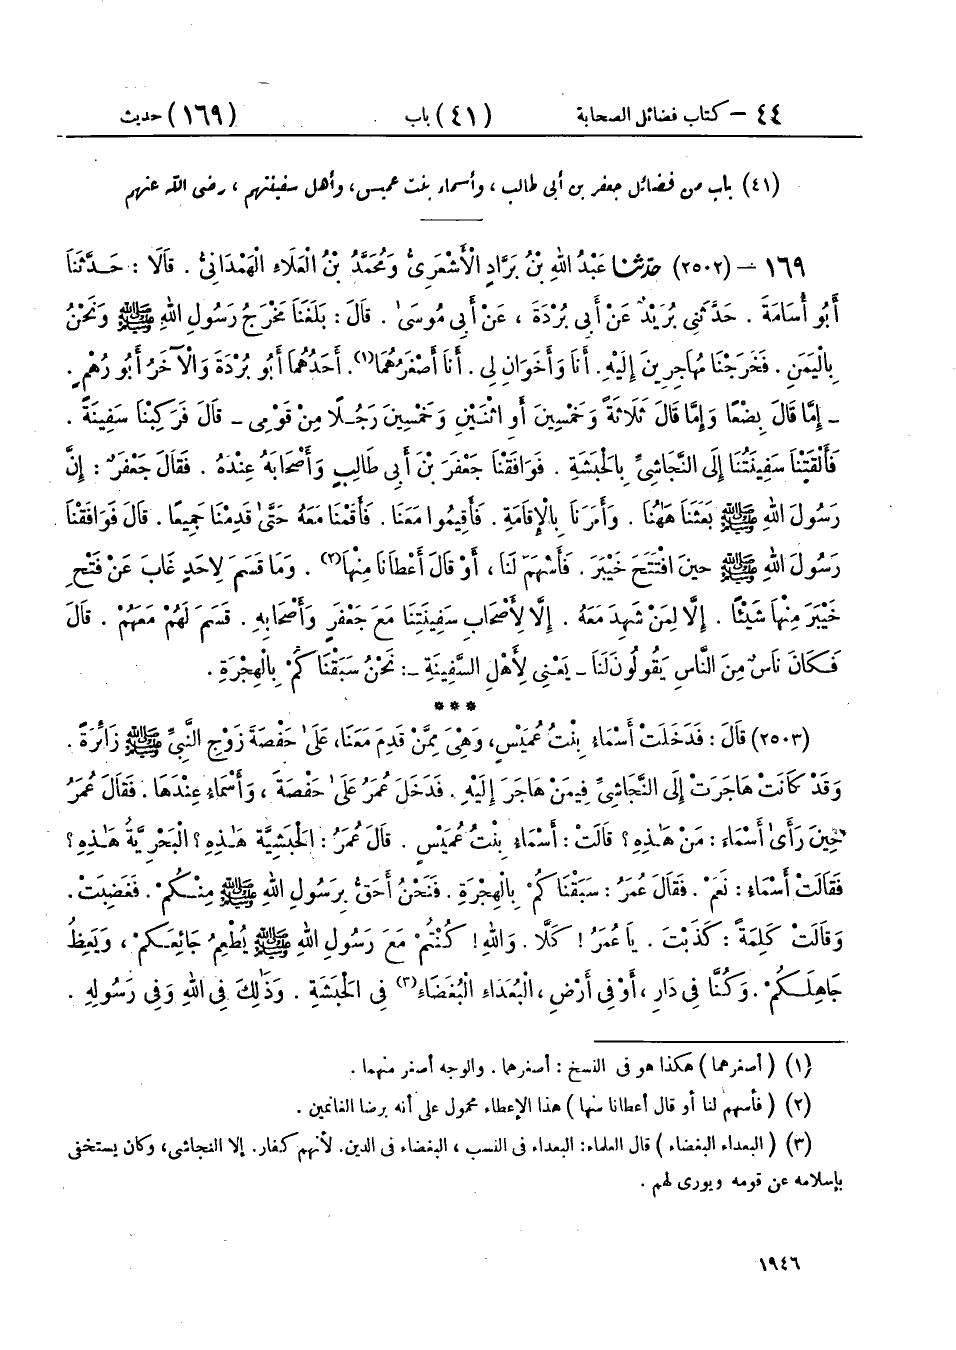 ٤٤ – كتاب فضائل الصحابة (٤١) باب (١٦٩) حديث
(٤١) باب من فضائل جعفر بن أبى طالب ، وأسماء بنت عميس، وأهل سفينتهم ، رضى الله عنهم
١٦٩ – (٢٥٠٢) حَدَّثَنَا عَبْدُ اللهِ بْنُ بَرَّادٍ الْأَشْعَرِىُّ وَمُحَمَّدُ بْنُ الْعَلَاءِ الْهَمْدَانِىُّ . قَالَا : حَدَّثَنَا
أَبُو أُسَامَةَ . حَدَّثَنِى بُرَيْدٌ عَنْ أَبِى بُرْدَةَ ، عَنْ أَبِى مُوسَىٰ . قَالَ : بَلَغَنَا مَخْرَجُ رَسُولِ اللهِ ﷺ وَنَحْنُ
بِالْيَمَنِ . فَخَرَجْنَا مُهَاجِرِينَ إِلَيْهِ. أَنَا وَأَخَوَانِ لِى . أَنَا أَصْغَرُهُمَا(١). أَحَدُهُمَا أَبُو بُرْدَةَ وَالْآخَرُ أَبُو رُهْمٍ .
ـ إِمَّا قَالَ بِضْعًا وَإِمَّا قَالَ ثَلَاثَةً وَخَمْسِينَ أَوِ اثْنَيْنِ وَخَمْسِينَ رَجُلًا مِنْ قَوْمِى ـ قَالَ فَرَكِبْنَا سَفِينَةً .
فَأَلْقَتْنَا سَفِينَتُنَا إِلَى النَّجَاشِىِّ بِالْحَبَشَةِ . فَوَافَقْنَا جَعْفَرَ بْنَ أَبِى طَالِبٍ وَأَصْحَابَهُ عِنْدَهُ . فَقَالَ جَعْفَرٌ : إِنَّ
رَسُولَ اللهِ ﷺ بَعَثَنَا هَهُنَا . وَأَمَرَنَا بِالْإِقَامَةِ . فَأَقِيمُوا مَعَنَا . فَأَقَمْنَا مَعَهُ حَتَّىٰ قَدِمْنَا جَمِيعًا . قَالَ فَوَافَقْنَا
رَسُولَ اللهِ ﷺ حِينَ افْتَتَحَ خَيْبَرَ . فَأَسْهَمَ لَنَا ، أَوْ قَالَ أَعْطَانَا مِنْهَا(٢) . وَمَا قَسَمَ لِأَحَدٍ غَابَ عَنْ فَتْحِ
خَيْبَرَ مِنْهَا شَيْئًا . إِلَّا لِمَنْ شَهِدَ مَعَهُ . إِلَّا لِأَصْحَابِ سَفِينَتِنَا مَعَ جَعْفَرٍ وَأَصْحَابِهِ . قَسَمَ لَهُمْ مَعَهُمْ . قَالَ
فَكَانَ نَاسٌ مِنَ النَّاسِ يَقُولُونَ لَنَا ـ يَعْنِى لِأَهْلِ السَّفِينَةِ ـ: نَحْنُ سَبَقْنَاكُمْ بِالْهِجْرَةِ .
***
(٢٥٠٣) قَالَ : فَدَخَلَتْ أَسْمَاءُ بِنْتُ عُمَيْسٍ، وَهْىَ مِمَّنْ قَدِمَ مَعَنَا، عَلَىٰ حَفْصَةَ زَوْجِ النَّبِىِّ ﷺ زَائِرَةً .
وَقَدْ كَانَتْ هَاجَرَتْ إِلَى النَّجَاشِىِّ فِيمَنْ هَاجَرَ إِلَيْهِ . فَدَخَلَ عُمَرُ عَلَىٰ حَفْصَةَ ، وَأَسْمَاءُ عِنْدَهَا . فَقَالَ عُمَرُ
حِينَ رَأَىٰ أَسْمَاءَ : مَنْ هَٰذِهِ ؟ قَالَتْ : أَسْمَاءُ بِنْتُ عُمَيْسٍ . قَالَ عُمَرُ : الْحَبَشِيَّةُ هَٰذِهِ ؟ الْبَحْرِيَّةُ هَٰذِهِ ؟
فَقَالَتْ أَسْمَاءُ : نَعَمْ . فَقَالَ عُمَرُ : سَبَقْنَاكُمْ بِالْهِجْرَةِ . فَنَحْنُ أَحَقُّ بِرَسُولِ اللهِ ﷺ مِنْكُمْ . فَغَضِبَتْ .
وَقَالَتْ كَلِمَةً : كَذَبْتَ . يَا عُمَرُ ! كَلَّا . وَاللهِ ! كُنْتُمْ مَعَ رَسُولِ اللهِ ﷺ يُطْعِمُ جَائِعَكُمْ ، وَيَعِظُ
جَاهِلَكُمْ . وَكُنَّا فِى دَارِ ، أَوْ فِى أَرْضِ ، الْبُعَدَاءِ الْبُغَضَاءِ(٣) فِى الْحَبَشَةِ . وَذَٰلِكَ فِى اللهِ وَفِى رَسُولِهِ .
(١) ( أصغرهما ) هكذا هو فى النسخ : أصغرهما . والوجه أصغر منهما .
(٢) ( فأسهم لنا أو قال أعطانا منها ) هذا الإعطاء محمول على أنه برضا الغانمين .
(٣) ( البعداء البغضاء ) قال العلماء: البعداء فى النسب ، البغضاء فى الدين. لأنهم كفار. إلا النجاشى، وكان يستخفى
بإسلامه عن قومه ويورى لهم .
١٩٤٦